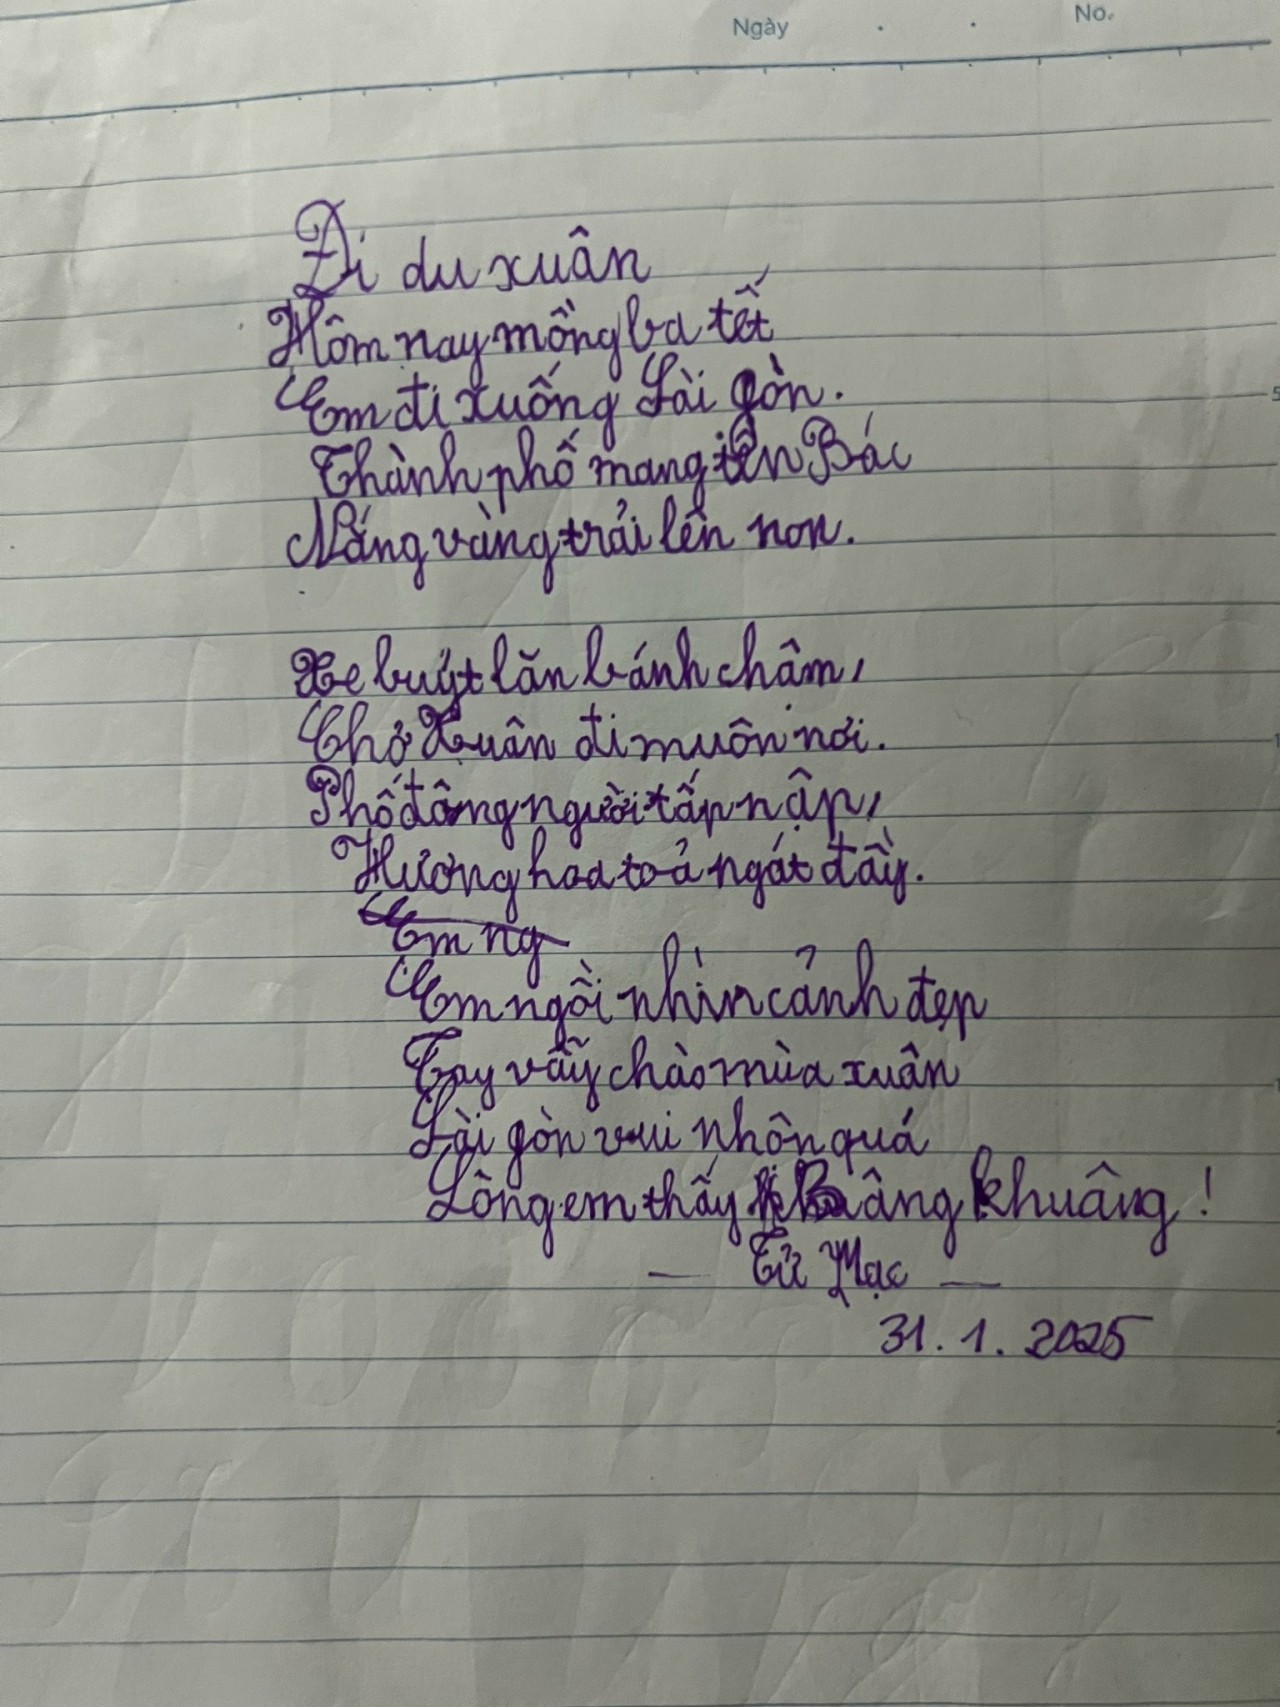 Ngày . . No.
Đi du xuân
Hôm nay mồng ba tết
Em đi xuống Sài gòn.
Thành phố mang tên Bác
Nắng vàng trải lên non.
Xe buýt lăn bánh châm,
Chở Xuân đi muôn nơi.
Phố đông người tấp nập,
Hương hoa toả ngát đầy.
Em ng
Em ngồi nhìn cảnh đẹp
Tay vẫy chào mùa xuân
Sài gòn vui nhôn quá
Lòng em thấy Bâng khuâng!
— Tử Mạc —
31.1.2025